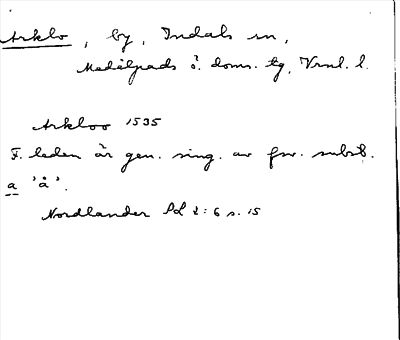 Arklo, by, Indals sn,
Medelpads ö. doms. tg, Vrnl. l.
Arkloo 1535
F. leden är gen. sing. av fsv. subst.
a 'å'.
Nordlander NS 2:6 s. 15